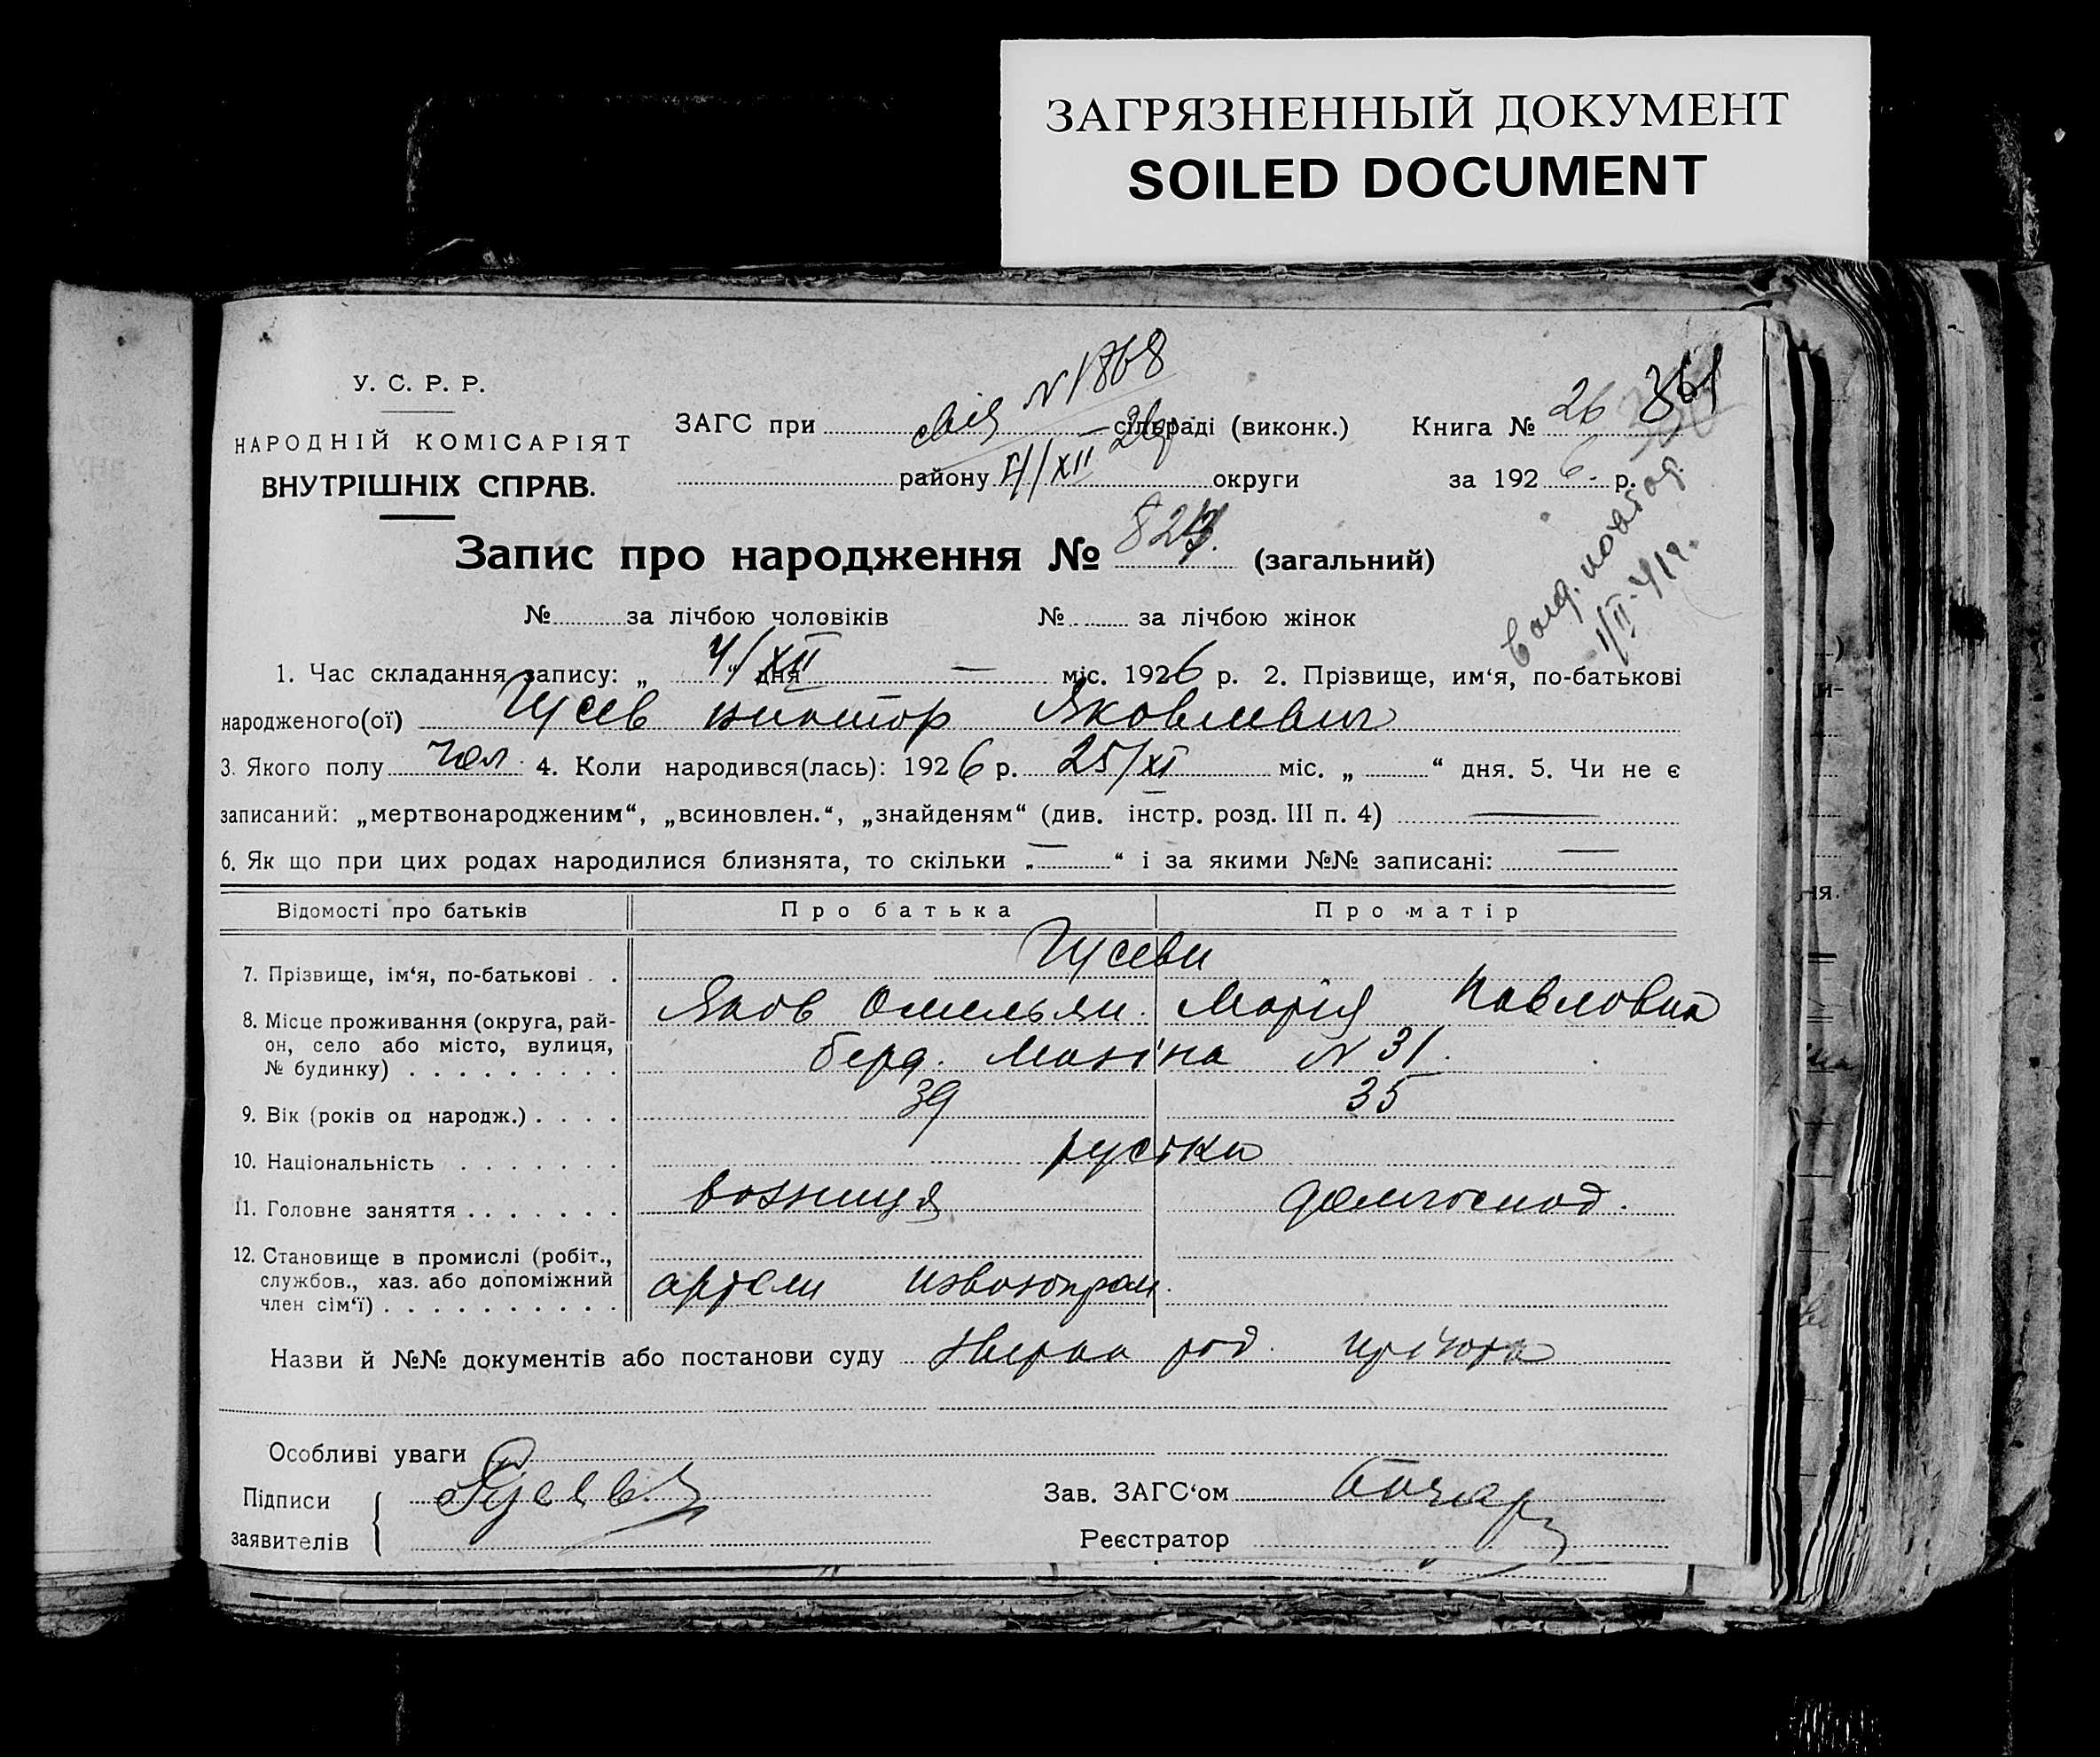 ЗАГРЯЗНЕННЫЙ ДОКУМЕНТ
SOILED DOCUMENT
У. С. Р. Р.
НАРОДНІЙ КОМІСАРІЯТ
ВНУТРІШНІХ СПРАВ.
N 1868
ЗАГС при сільраді (виконк.)
району 4/XII 26 округи
Книга № 26 361
за 1926 р.
Запис про народження № 823. (загальний)
№ за лічбою чоловіків № за лічбою жінок
1. Час складання запису: „ 4/XII дня — міс. 1926 р. 2. Прізвище, им‘я, по-батькові
народженого(ої) Гусев Виктор Яковлевич
3. Якого полу чол. 4. Коли народився(лась): 1926 р. 25/XI міс. „ “ дня. 5. Чи не є
записаний: „мертвонародженим“, „всиновлен.“, „знайденям“ (див. інстр. розд. III п. 4) —
6. Як що при цих родах народилися близнята, то скільки „—“ і за якими №№ записані: —
Відомості про батьків Про батька Про матір
7. Прізвище, ім‘я, по-батькові . . Гусеви
Яков Омельян. Марія Павловна
8. Місце проживання (округа, рай-
он, село або місто, вулиця,
№ будинку) . . . . . . . . . Берд. N 31.
9. Вік (років од народж.) . . . . 39 35
10. Національність . . . . . . . руські
11. Головне заняття . . . . . . . возниця домгоспод.
12. Становище в промислі (робіт.,
службов., хаз. або допоміжний
член сім‘ї) . . . . . . . . . . артели извозопром.
Назви й №№ документів або постанови суду
Особливі уваги
Підписи
заявителів Гусев
Зав. ЗАГС‘ом
Реєстратор